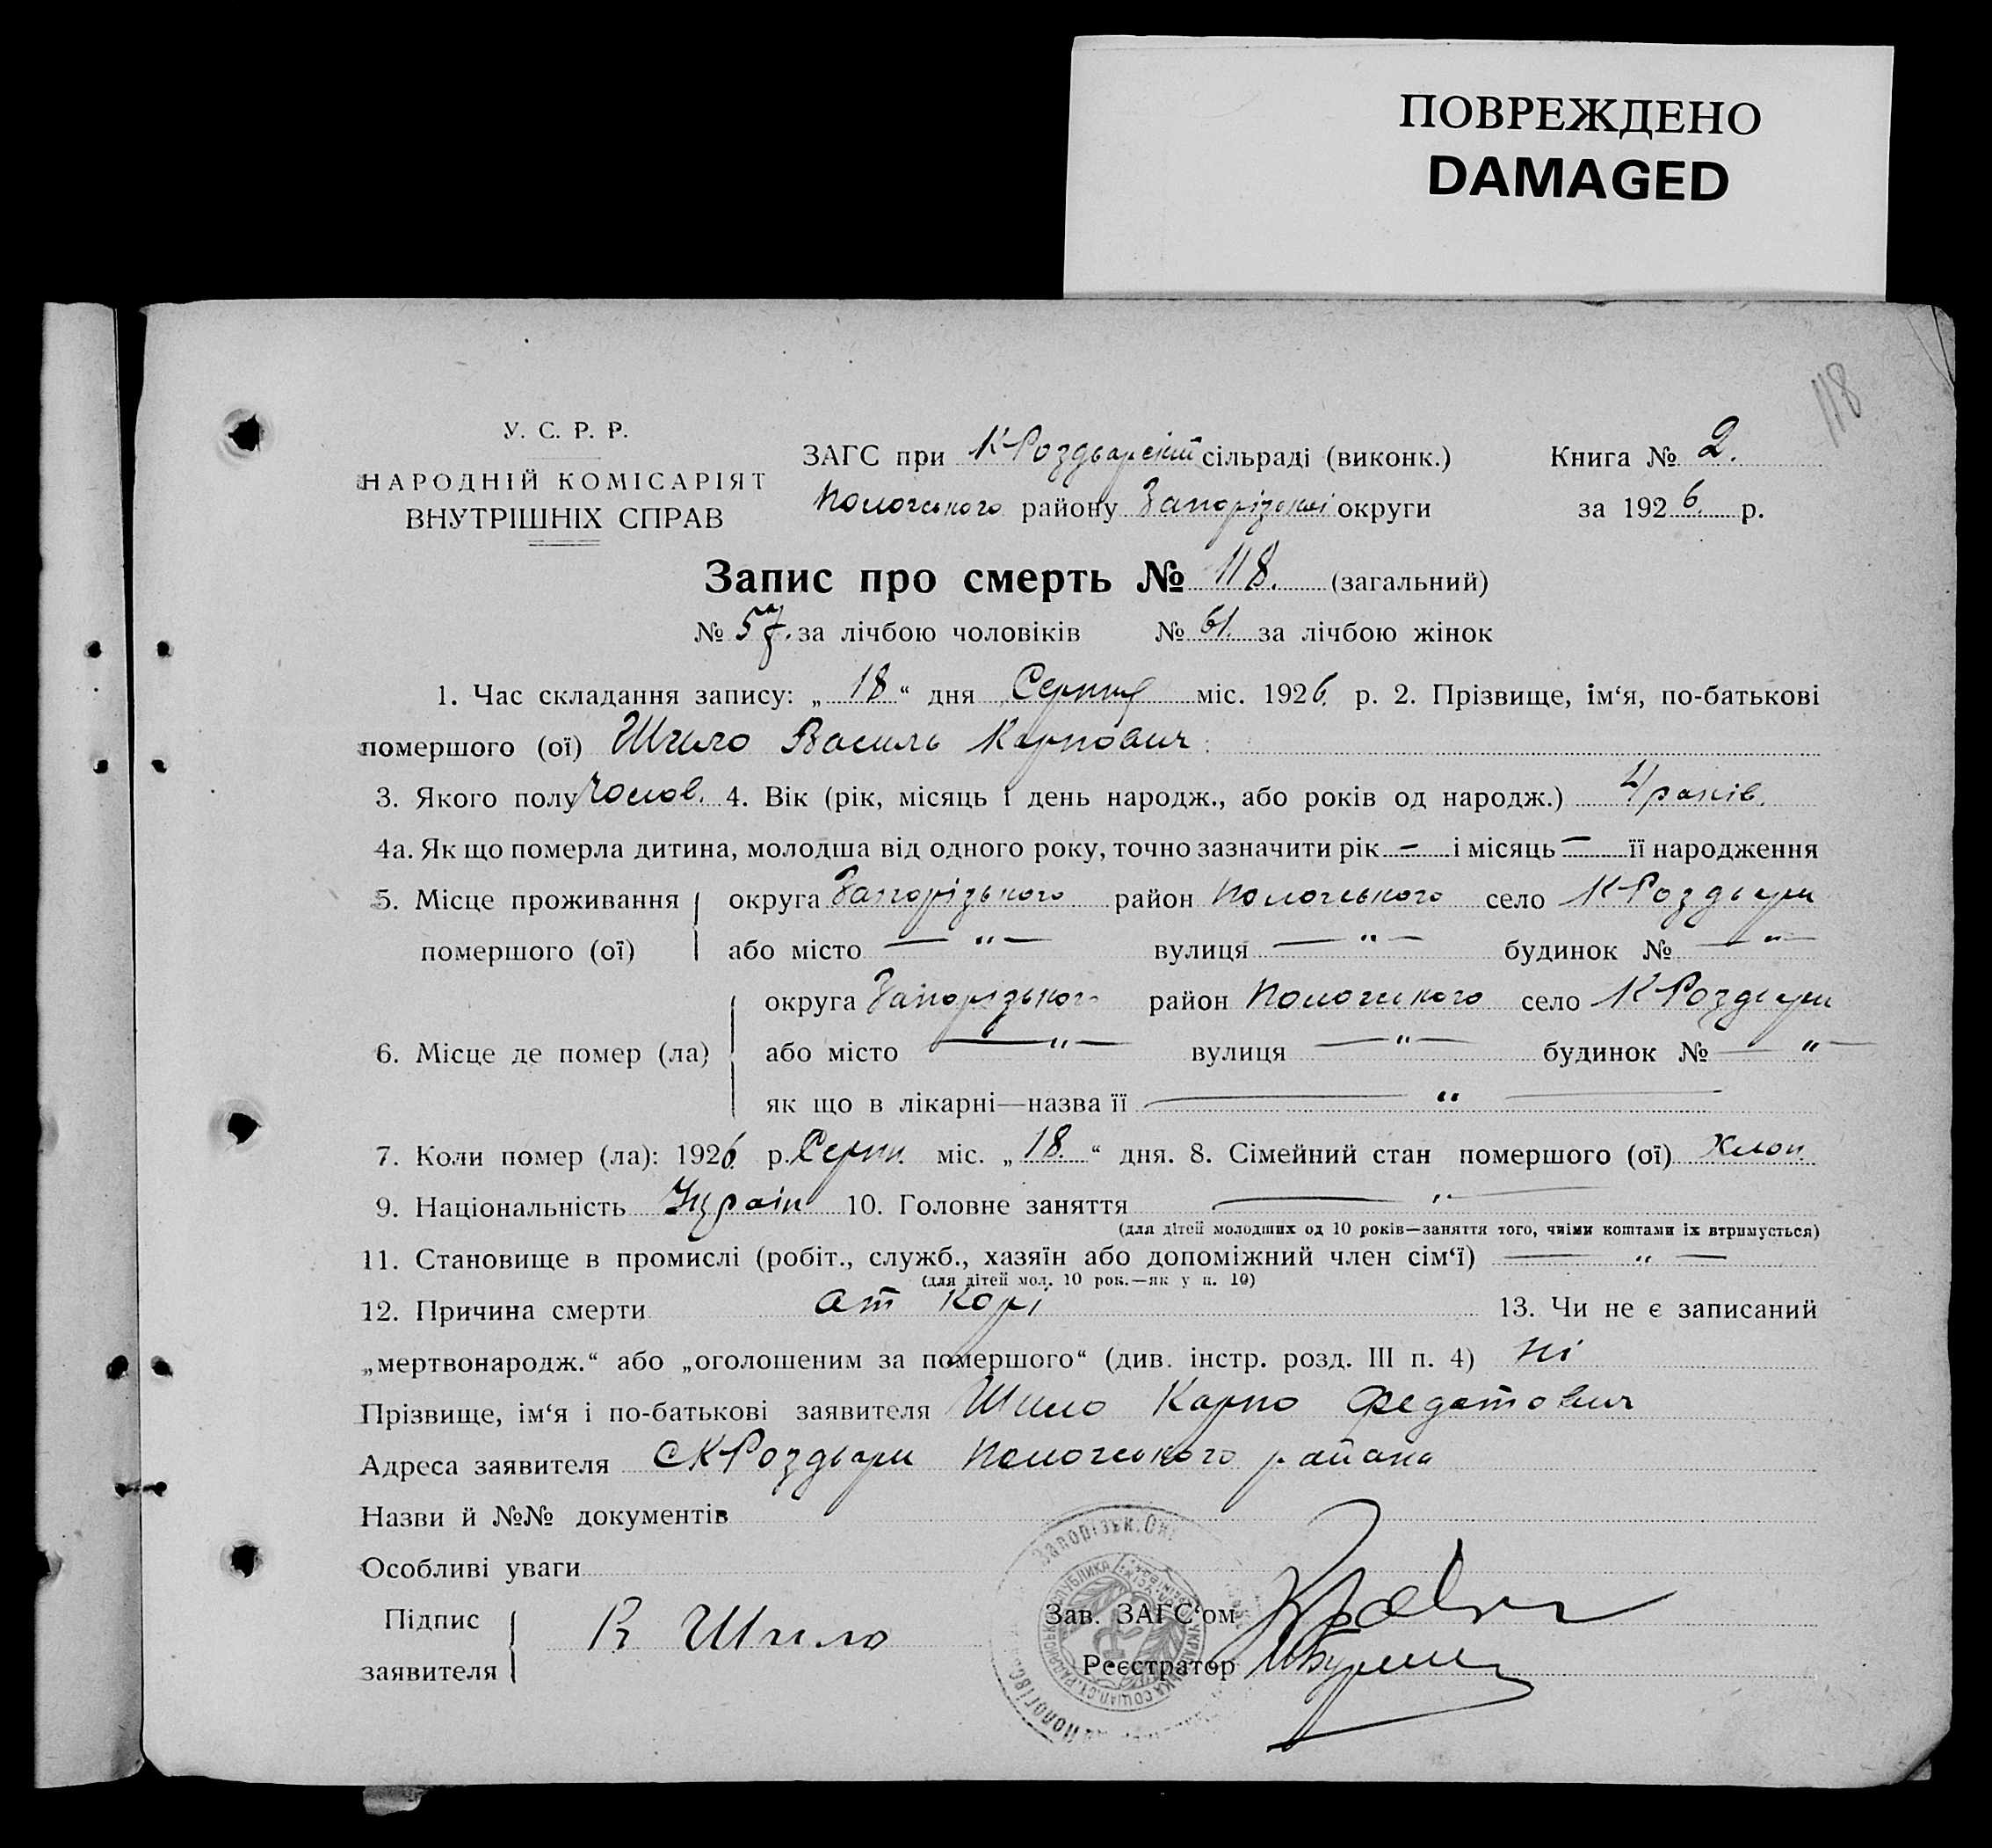 ПОВРЕЖДЕНО
DAMAGED
118
У. С. Р. Р.
НАРОДНІЙ КОМІСАРІЯТ
ВНУТРІШНІХ СПРАВ
ЗАГС при К Роздорській сільраді (виконк.)
Пологського району Запорізької округи
Книга № 2.
за 1926. р.
Запис про смерть № 118. (загальний)
№ 57. за лічбою чоловіків № 61. за лічбою жінок
1. Час складання запису: „ 18 “ дня Серпня міс. 1926. р. 2. Прізвище, ім‘я, по-батькові
помершого (ої) Шило Василь Карпович
3. Якого полу Чолов. 4. Вік (рік, місяць і день народж., або років од народж.) 4 років.
4а. Як що померла дитина, молодша від одного року, точно зазначити рік – і місяць – її народження
5. Місце проживання округа Запорізького район Пологського село К Роздори
помершого (ої) або місто — " — вулиця — " — будинок № — " —
округа Запорізького район Пологського село К Роздори
6. Місце де помер (ла) або місто — " — вулиця — " — будинок № — " —
як що в лікарні—назва її — " —
7. Коли помер (ла): 1926. р. Серпн. міс. „ 18. “ дня. 8. Сімейний стан помершого (ої) Хлоп.
9. Національність Україн 10. Головне заняття — " —
(для дітей молодших од 10 років—заняття того, чиїми коштами їх втримується)
11. Становище в промислі (робіт., служб., хазяїн або допоміжний член сім‘ї) — " —
(для дітей мол. 10 рок.—як у п. 10)
12. Причина смерти от Корі 13. Чи не є записаний
„мертвонародж.“ або „оголошеним за помершого“ (див. інстр. розд. III п. 4) Ні
Прізвище, ім‘я і по-батькові заявителя Шило Карпо Федотович
Адреса заявителя С К Роздори Пологського района
Назви й №№ документів
Особливі уваги
Підпис
заявителя
К Шило
Зав. ЗАГС‘ом
Реєстратор
Запорізьк. Ок